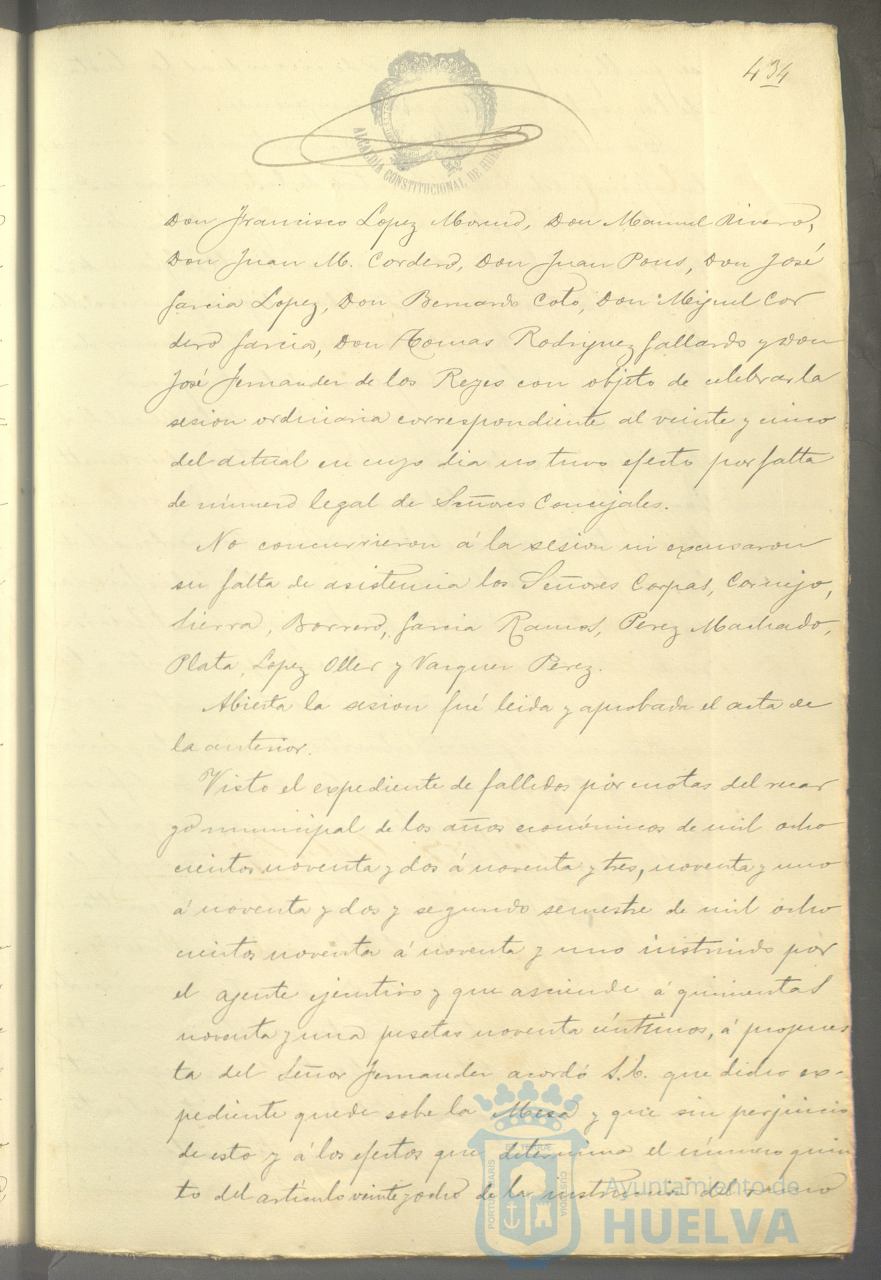 434
ALCALDIA CONSTITUCIONAL DE HUELVA
Don Francisco Lopez Moreno, Don Manuel Rivero,
Don Juan M. Cordero, Don Juan Pons, Don José
Garcia Lopez, Don Bernardo Coto, Don Miguel Cor
dero Garcia, Don Tomas Rodriguez Gallardo y Don
José Fernandez de los Reyes con objeto de celebrar la
sesion ordinaria correspondiente al veinte y cinco
del actual en cuyo dia no tuvo efecto por falta
de número legal de Señores Concejales.
No concurrieron á la sesion ni excusaron
su falta de asistencia los Señores Corpas, Cornejo,
Sierra, Borrero, Garcia Ramos, Perez Machado,
Plata, Lopez Oller y Vazquez Perez.
Abierta la sesion fué leida y aprobada el acta de
la anterior.
Visto el expediente de fallidos por cuotas del recar
go municipal de los años económicos de mil ocho
cientos noventa y dos á noventa y tres, noventa y uno
á noventa y dos y segundo semestre de mil ocho
cientos noventa á noventa y uno instruido por
el agente ejecutivo y que asciende á quinientas
noventa y una pesetas noventa céntimos, á propues
ta del Señor Fernandez acordó S.E. que dicho ex-
pediente quede sobre la Mesa y que sin perjuicio
de esto y á los efectos que determina el número quin
to del artículo veinte y ocho de la instruccion del
PORTUS MARIS
ET TERRAE
CUSTODIA
Ayuntamiento de
HUELVA